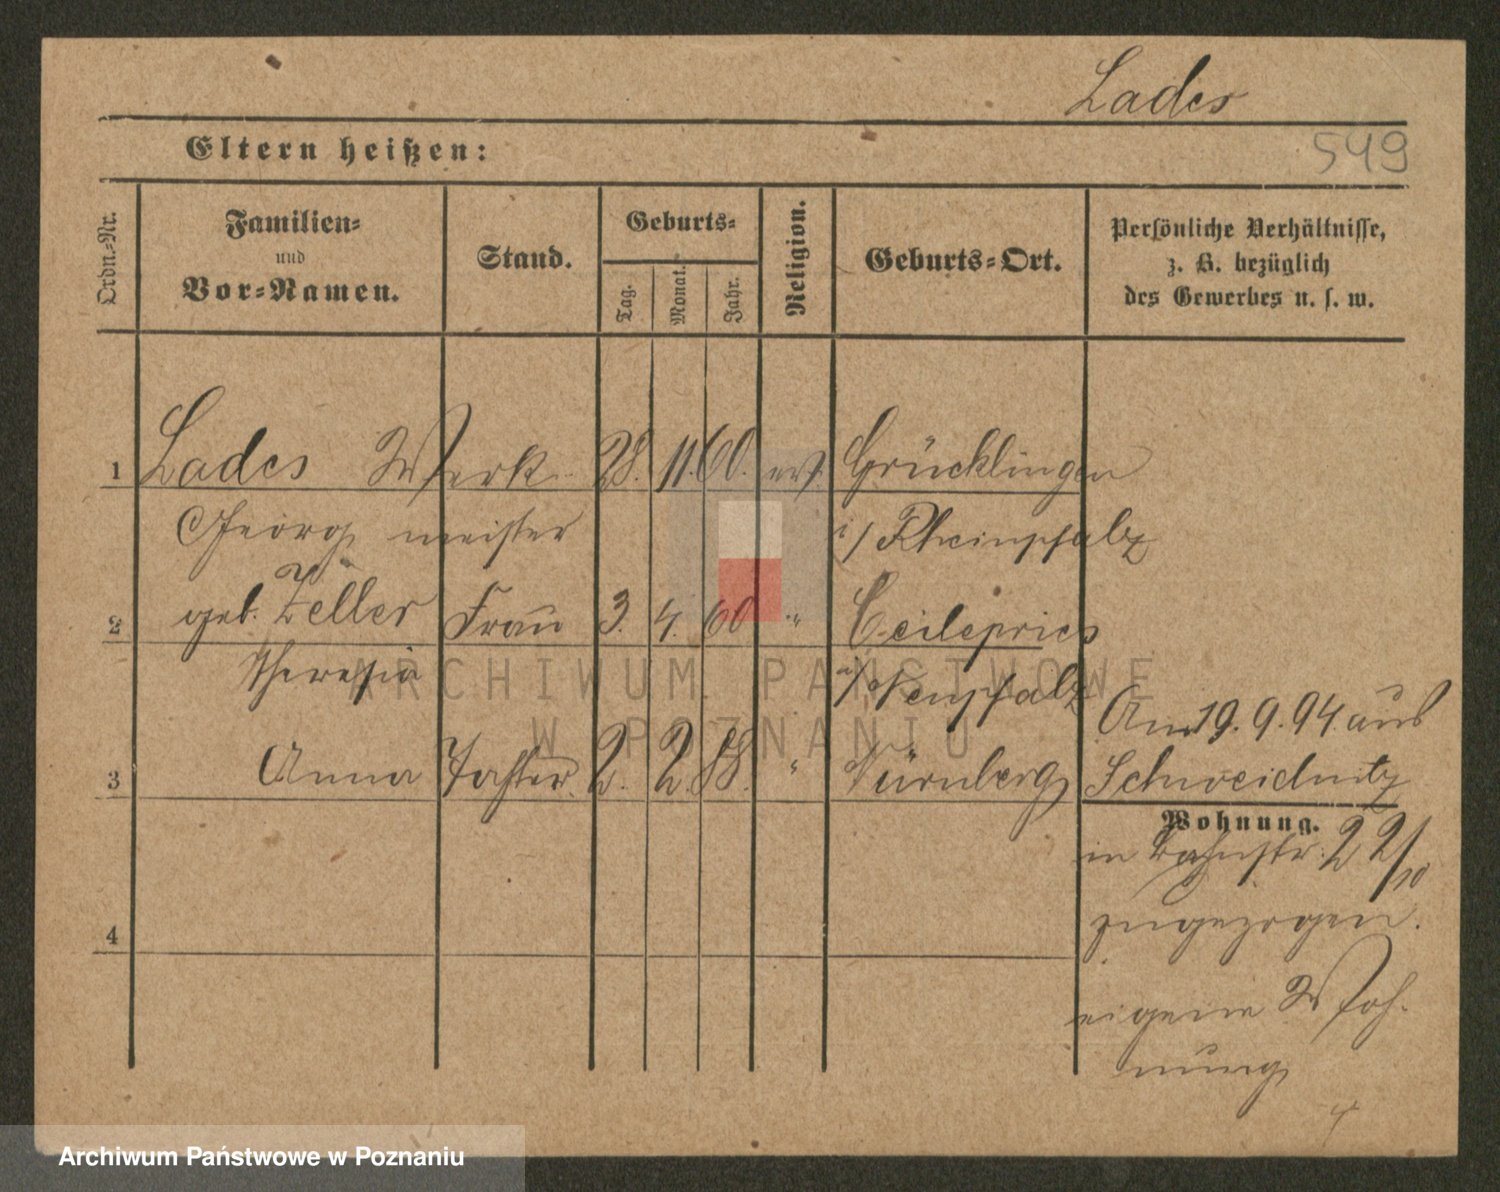 Lades
549
Eltern heißen:
Ordn.-Nr.
Familien-
und
Vor-Namen.
Stand.
Geburts-
Tag.
Monat.
Jahr.
Religion.
Geburts-Ort.
Persönliche Verhältnisse,
z. B. bezüglich
des Gewerbes u. s. w.
1 Lades Werk- 28. 11. 60. Grücklingen
Georg meister i/ Rheinpfalz
2 geb. Zeller Frau 3. 4. 60 "
Theresia
Am 19. 9. 94 aus
3 Anna Tochter 2. 2. 88. " Nürnberg Schweidnitz
Wohnung.
in Bahnstr. 22/10
zugezogen.
4
eigene Woh-
nung
ARCHIWUM PAŃSTWOWE
W POZNANIU
Archiwum Państwowe w Poznaniu